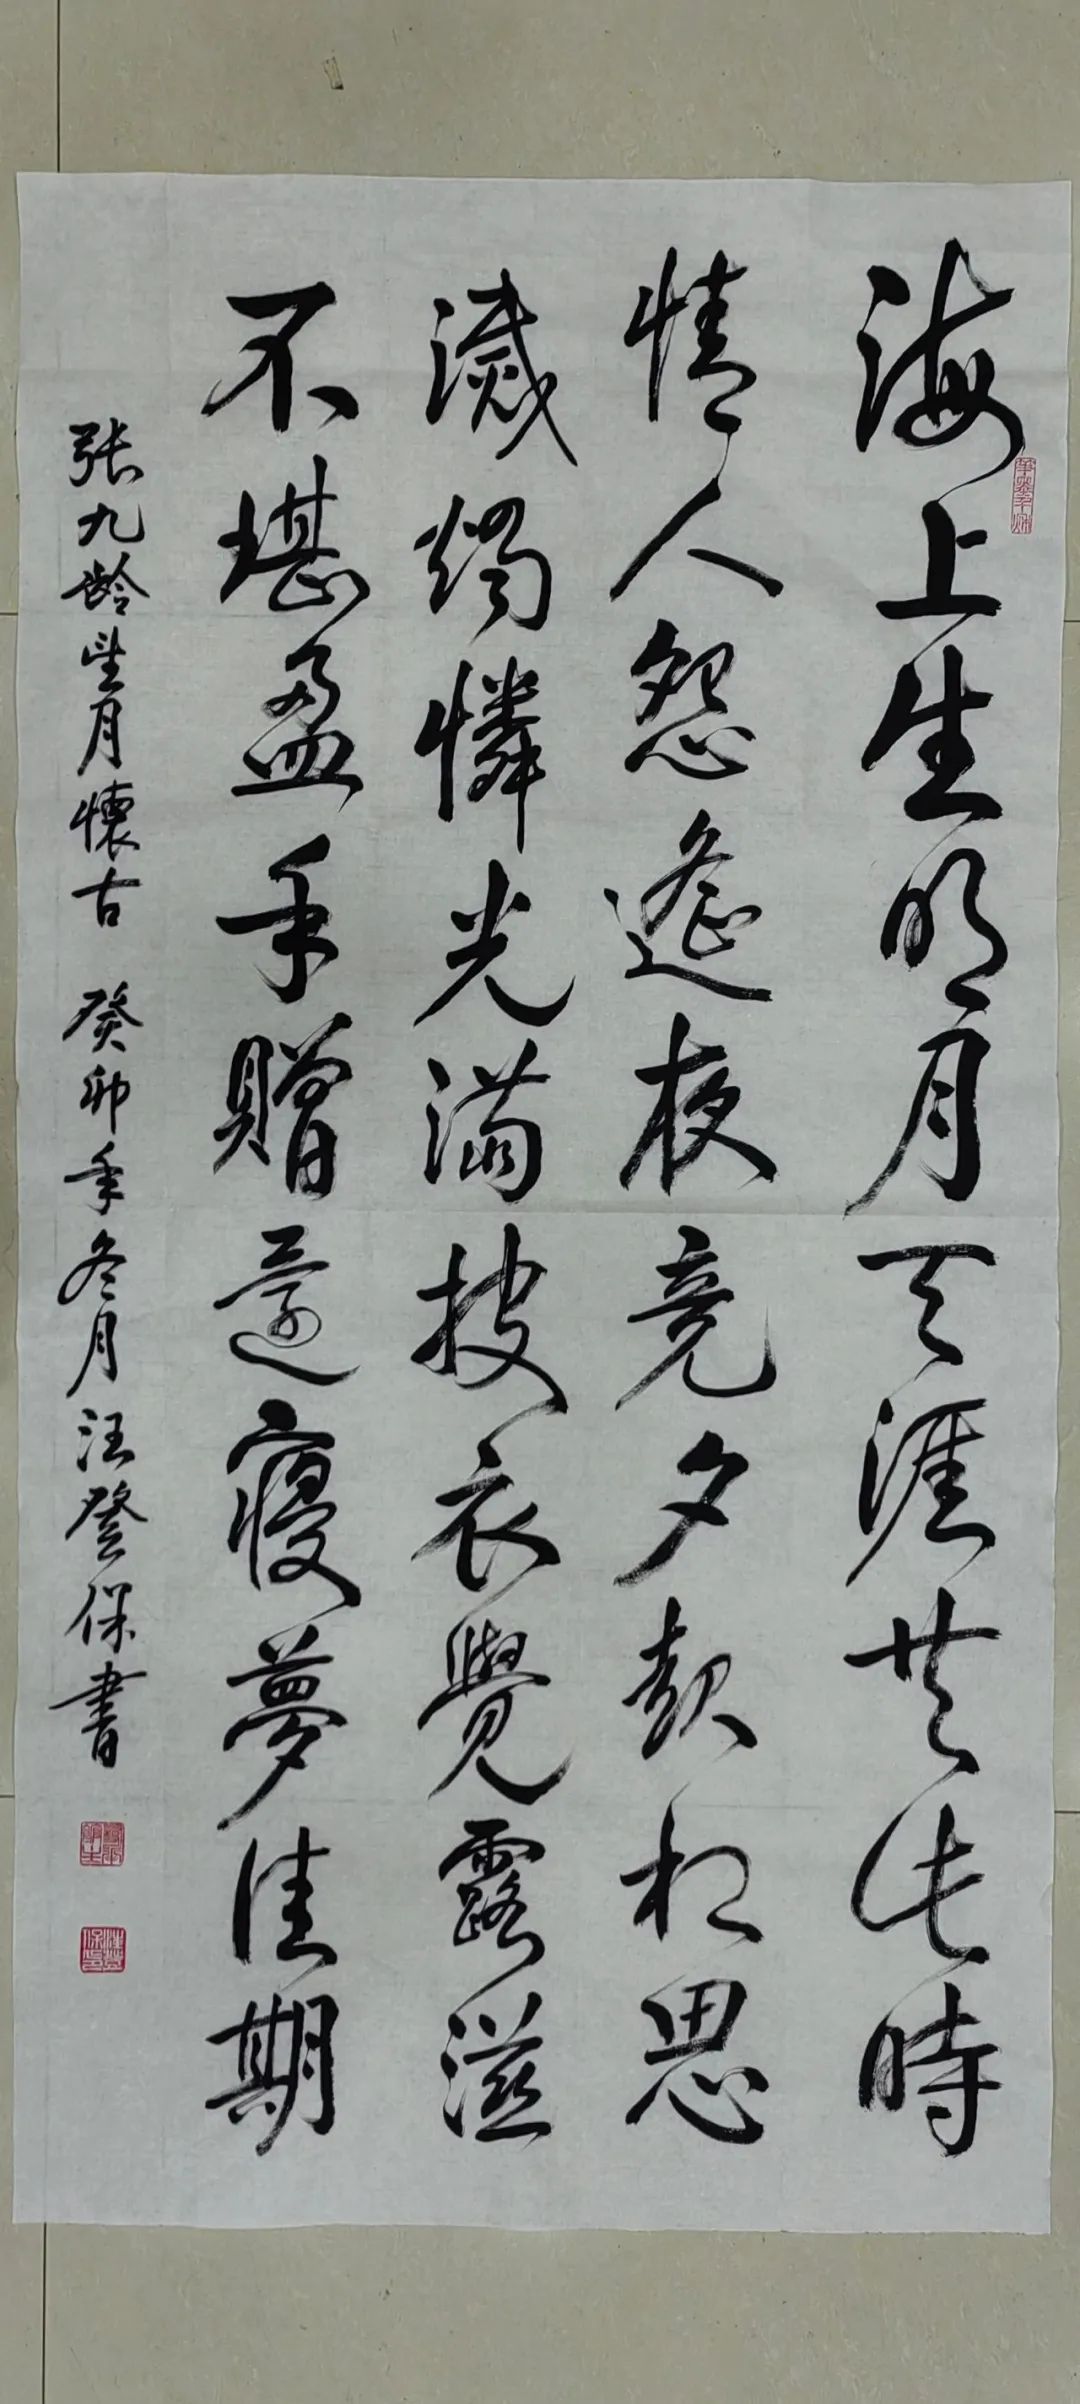 海上生明月天涯共此時
情人怨遙夜竟夕起相思
滅燭憐光滿披衣覺露滋
不堪盈手贈還寢夢佳期
张九龄望月懷古 癸卯年冬月汪登保書
汪登保印